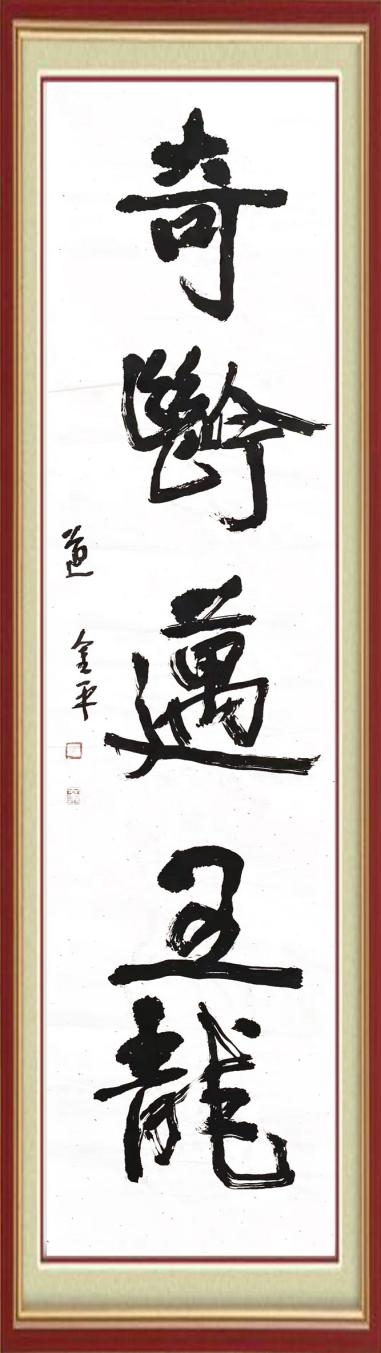 奇齡邁五龍
道 金平